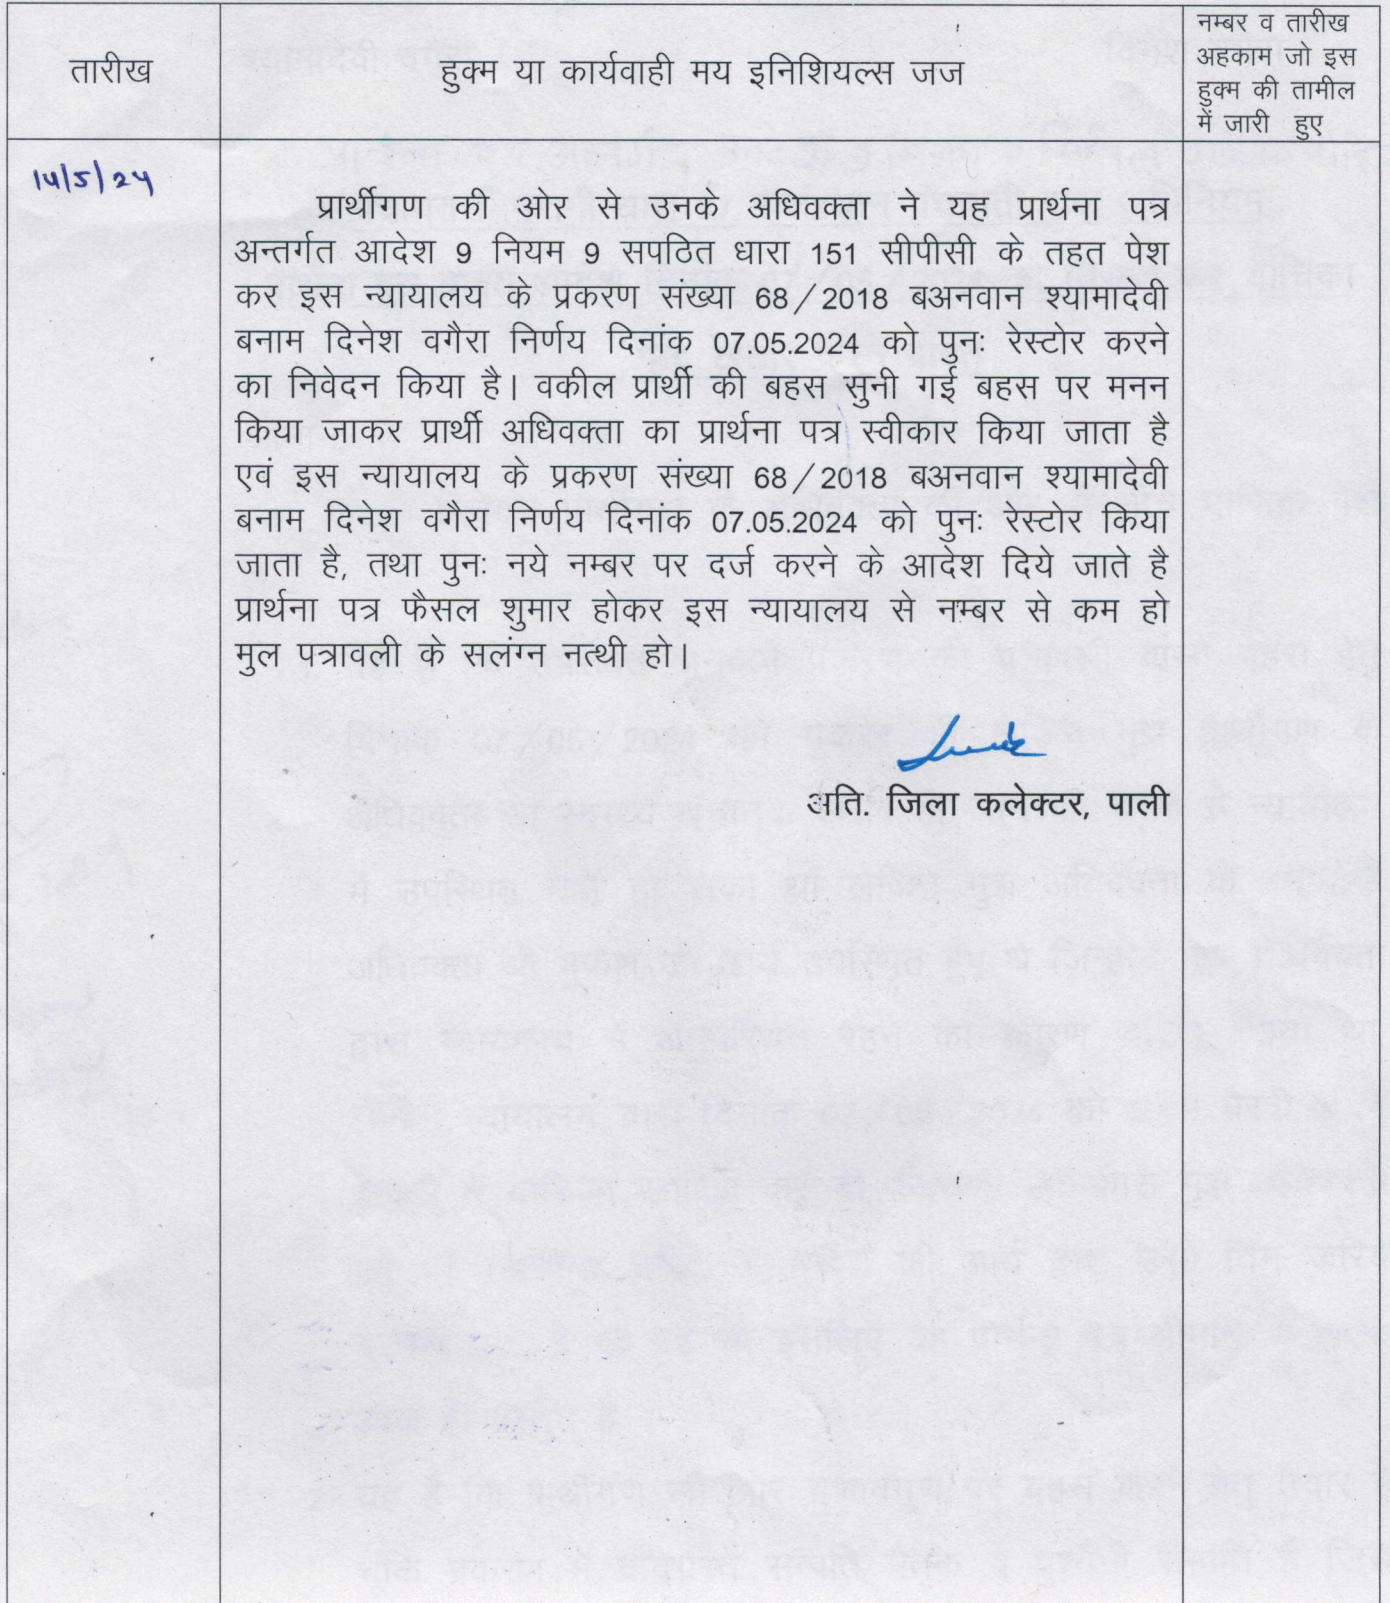 तारीख
हुक्म या कार्यवाही मय इनिशियल्स जज
नम्बर व तारीख
अहकाम जो इस
हुक्म की तामील
में जारी हुए
14/5/24
प्रार्थीगण की ओर से उनके अधिवक्ता ने यह प्रार्थना पत्र
अन्तर्गत आदेश 9 नियम 9 सपठित धारा 151 सीपीसी के तहत पेश
कर इस न्यायालय के प्रकरण संख्या 68/2018 बअनवान श्यामादेवी
बनाम दिनेश वगैरा निर्णय दिनांक 07.05.2024 को पुनः रेस्टोर करने
का निवेदन किया है। वकील प्रार्थी की बहस सुनी गई बहस पर मनन
किया जाकर प्रार्थी अधिवक्ता का प्रार्थना पत्र स्वीकार किया जाता है
एवं इस न्यायालय के प्रकरण संख्या 68/2018 बअनवान श्यामादेवी
बनाम दिनेश वगैरा निर्णय दिनांक 07.05.2024 को पुनः रेस्टोर किया
जाता है, तथा पुनः नये नम्बर पर दर्ज करने के आदेश दिये जाते है
प्रार्थना पत्र फैसल शुमार होकर इस न्यायालय से नम्बर से कम हो
मुल पत्रावली के सलंग्न नत्थी हो।
अति. जिला कलेक्टर, पाली